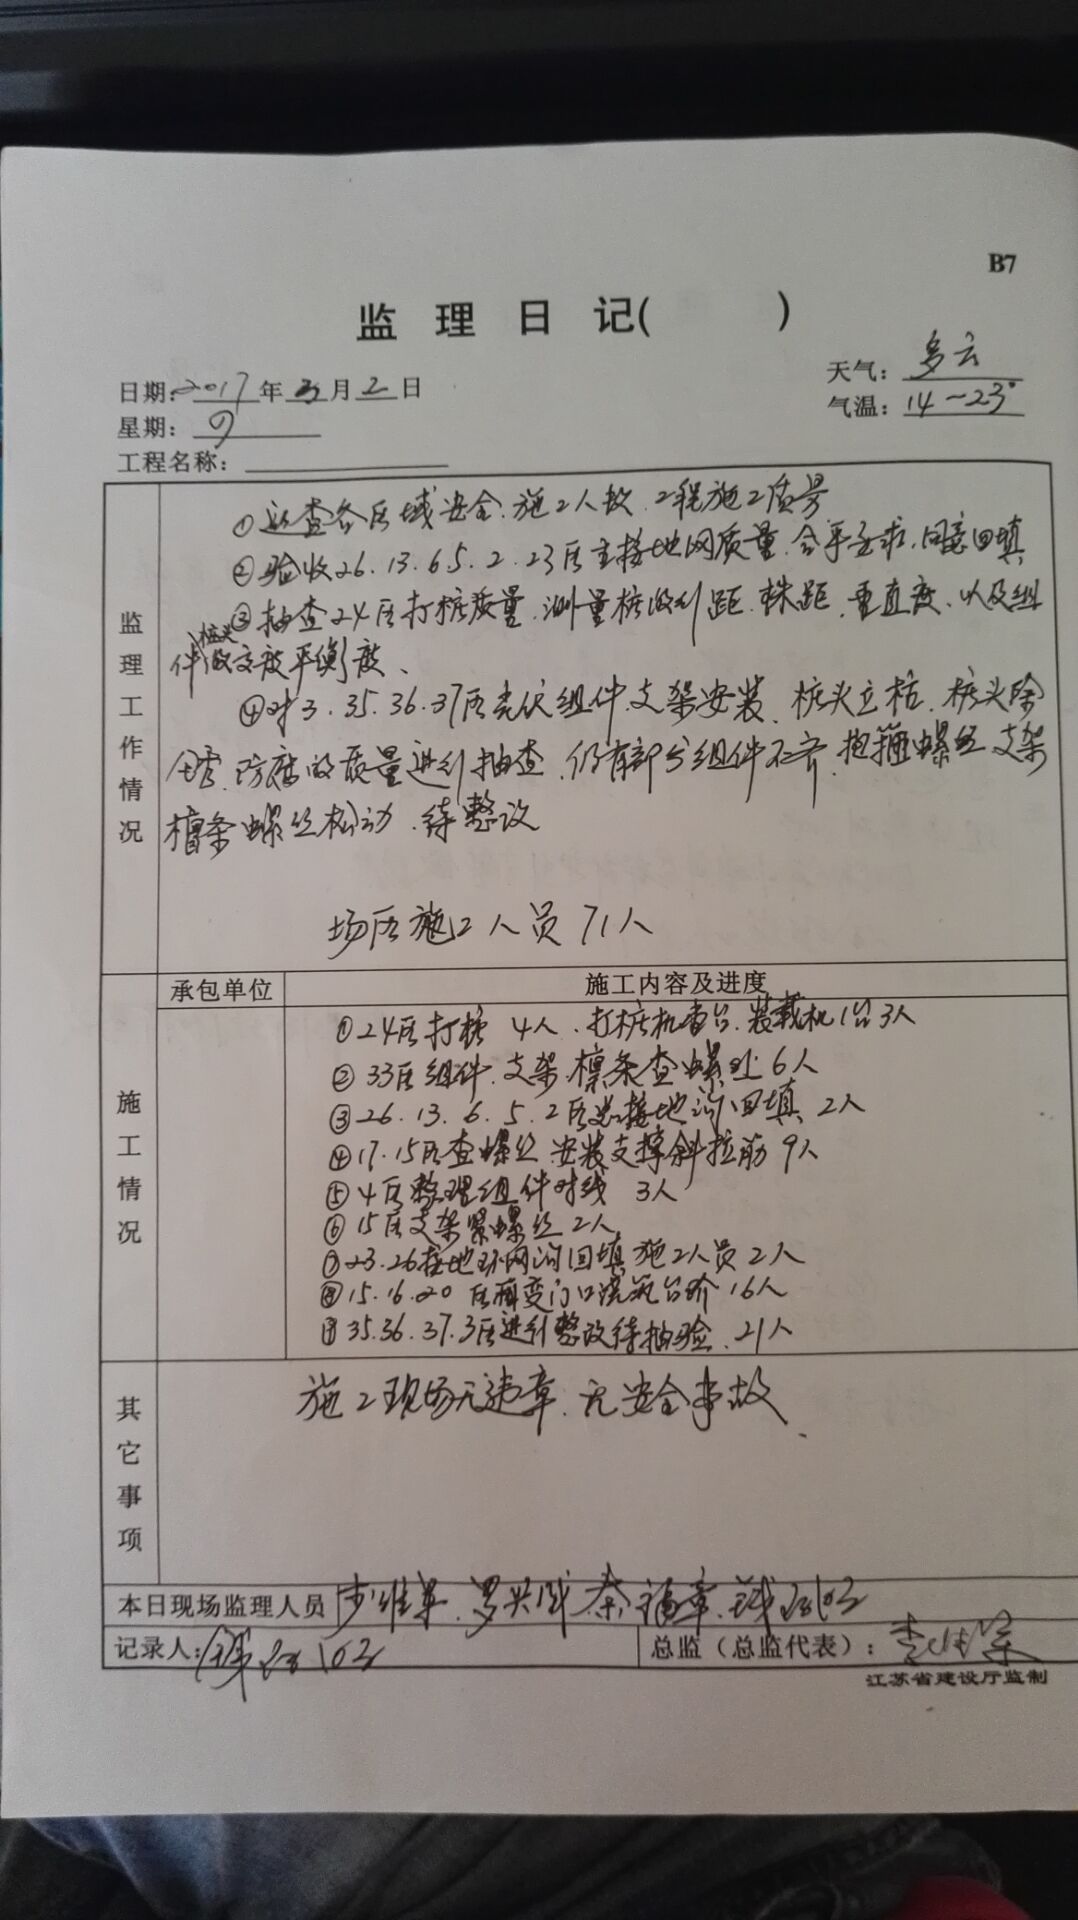 B7
监 理 日 记( )
日期: 2017 年 3 月 2 日
天气: 多云
星期: 四
气温: 14~23°
工程名称:
监理工作情况
①巡查各区域安全.施工人数.工程施工质量
②验收26.13.6.5.2.23区主接地网质量.合乎要求.同意回填
③抽查24区打桩质量.测量桩的行距.株距.垂直度.以及组
件桩头的高度平衡度、
④对3.35.36.37区光伏组件.支架安装.桩头立柱.桩头除
防腐的质量进行抽查.仍有部分组件不齐.抱箍螺丝.支架
檩条螺丝松动.待整改
场区施工人员71人
承包单位 施工内容及进度
施工情况
①24区打桩 4人.打桩机壹台.装载机1台3人
②33区组件.支架.檩条查螺丝6人
③26.13.6.5.2区接地沟回填 2人
④17.15区查螺丝.安装支撑斜拉筋9人
⑤4区整理组件对线 3人
⑥15区支架紧螺丝2人
⑦23.26接地环网沟回填施工人员2人
⑧15.16.20区箱变门口浇筑台阶16人
⑨35.36.37.3区进行整改待抽验.21人
其它事项
施工现场无违章.无安全事故、
本日现场监理人员
记录人:
总监（总监代表）:
江苏省建设厅监制